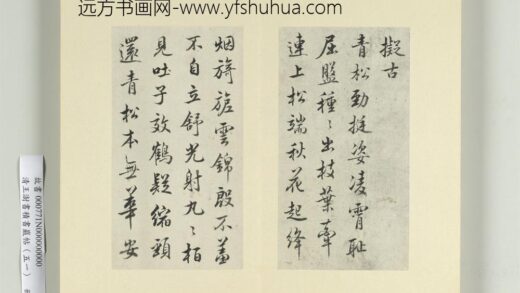 远方书画网-www.yfshuhua.com
擬古
青松勁挺姿凌霄恥
屈盤種〻出枝葉牽
連上松端秋花起絳
烟旖旎雲錦殷不羞
不自立舒光射丸〻柏
見吐子效鶴疑縮頸
還青松本無華安
故書 000771N00000000
清王澍書積書巖帖（五一）